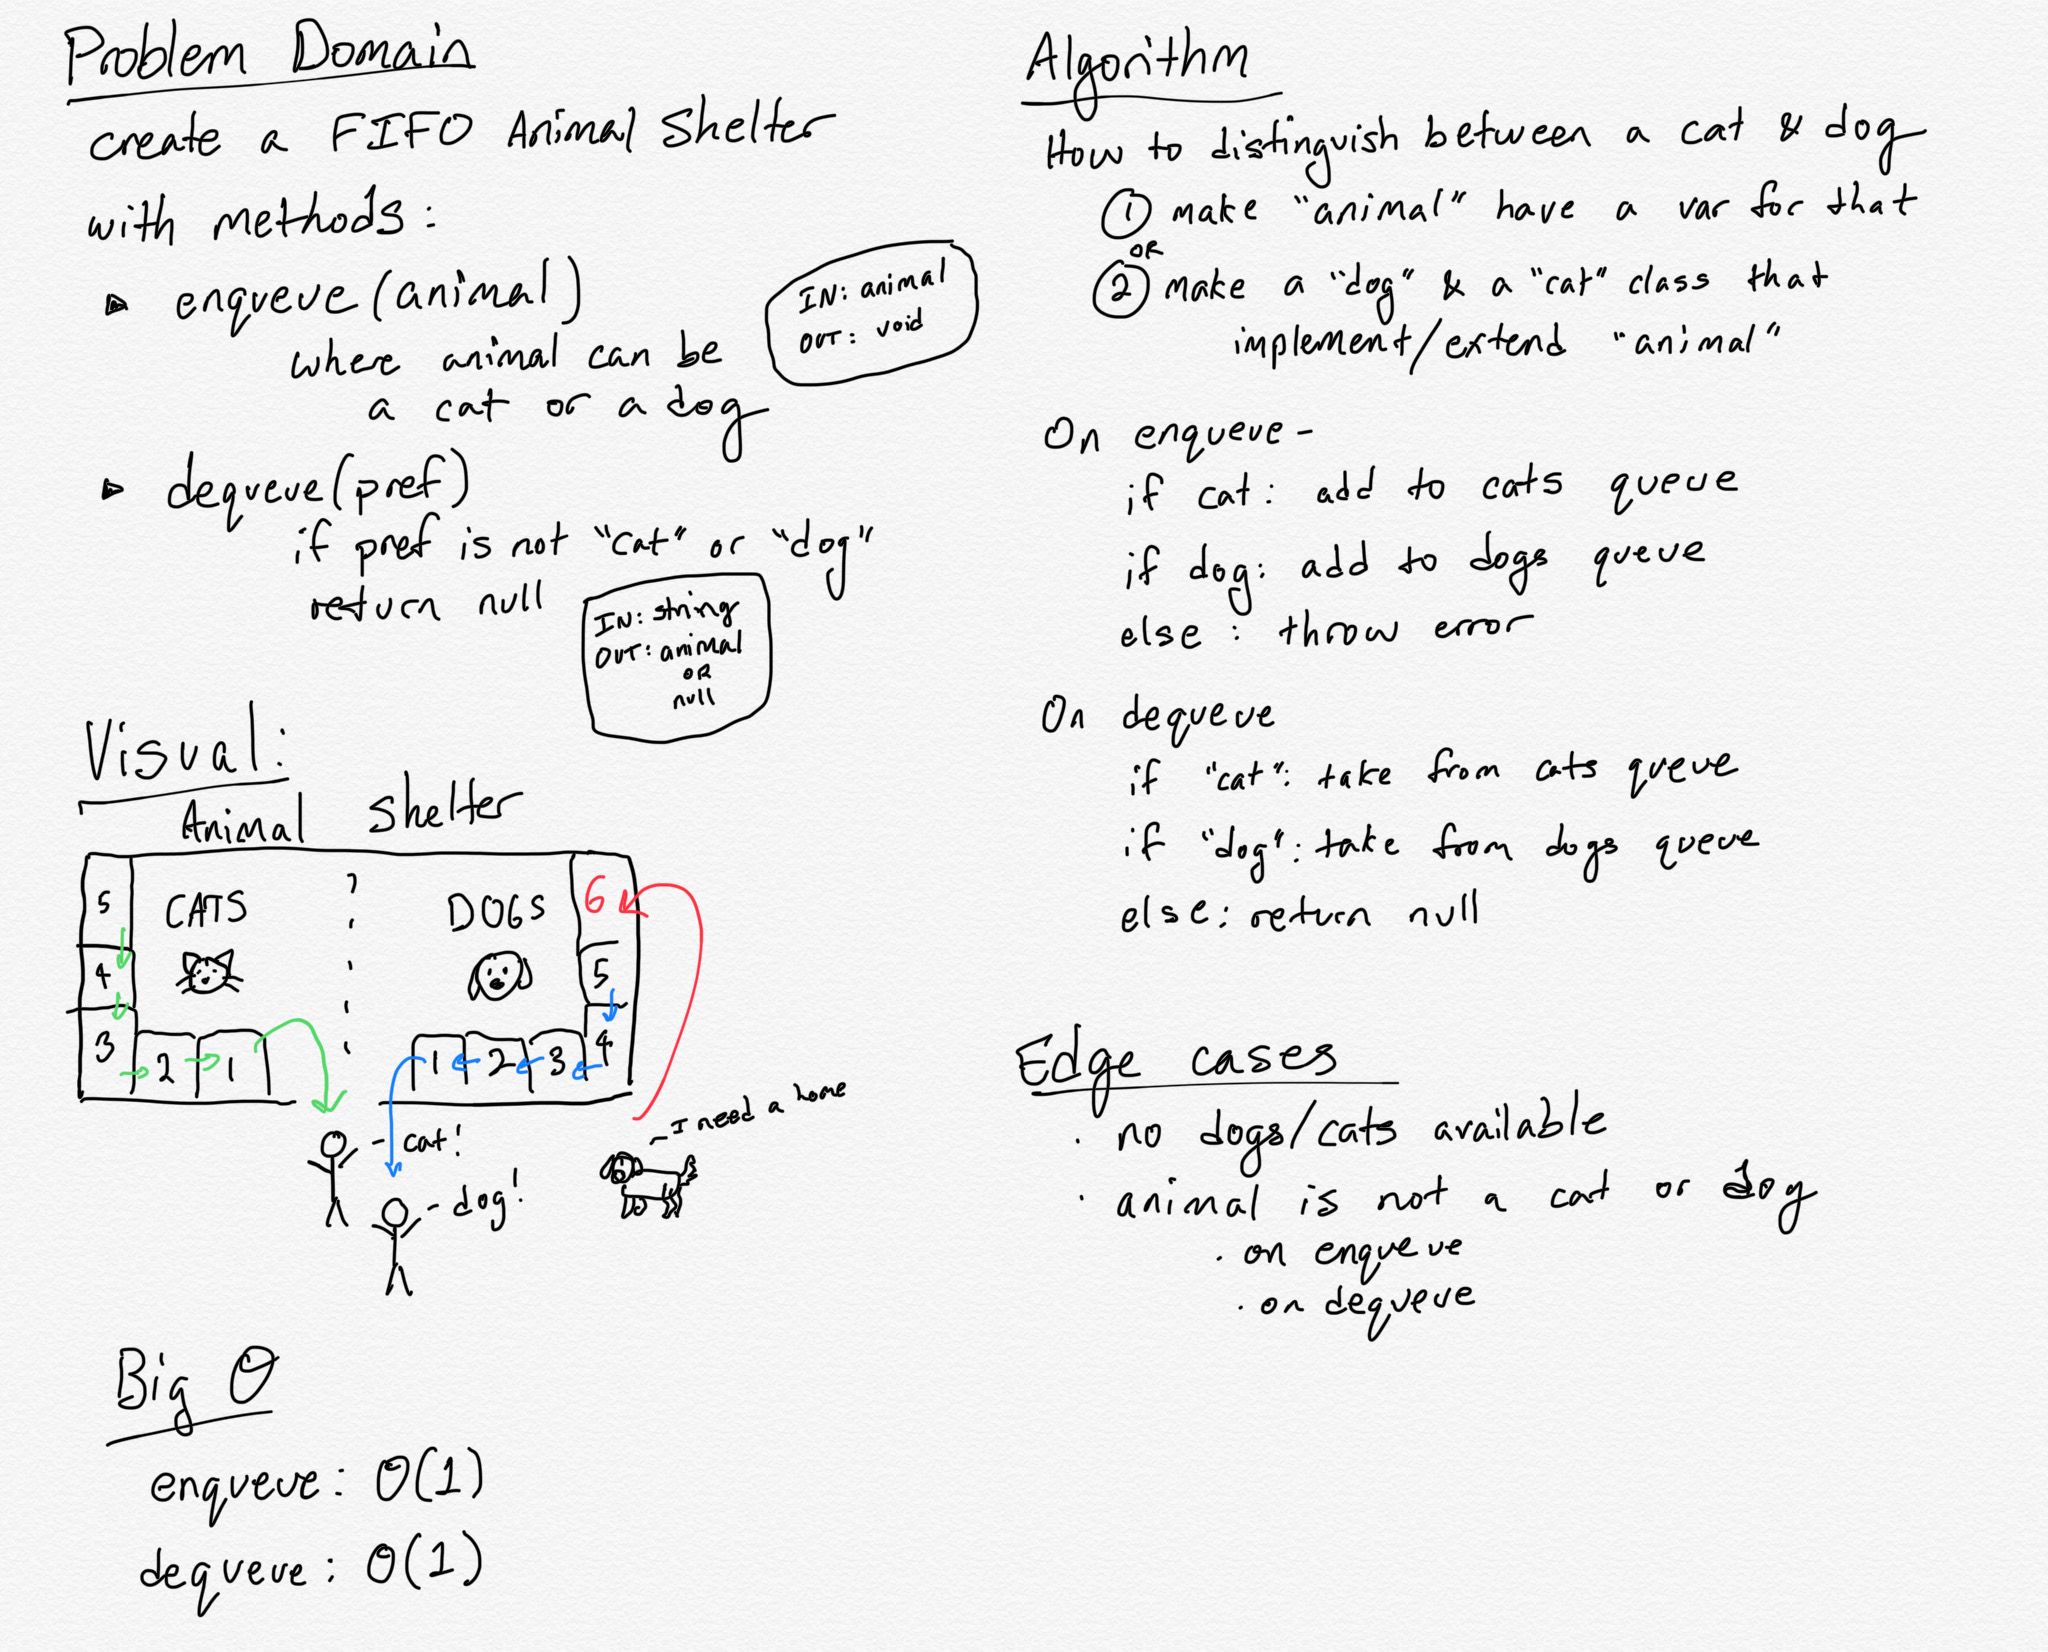 Problem Domain
create a FIFO Animal Shelter
with methods:
▸ enqueue(animal)
where animal can be
a cat or a dog
IN: animal
OUT: void
▸ dequeue(pref)
if pref is not "cat" or "dog"
return null
IN: string
OUT: animal
OR
null
Visual:
Animal Shelter
5
CATS
4
3
2
1
DOGS
6
5
4
1
2
3
- cat!
- dog!
- I need a home
Big O
enqueue: O(1)
dequeue: O(1)
Algorithm
How to distinguish between a cat & dog
① make "animal" have a var for that
OR
② make a "dog" & a "cat" class that
implement/extend "animal"
On enqueue -
if cat: add to cats queue
if dog: add to dogs queue
else: throw error
On dequeue
if "cat": take from cats queue
if "dog": take from dogs queue
else: return null
Edge cases
· no dogs/cats available
· animal is not a cat or dog
· on enqueue
· on dequeue